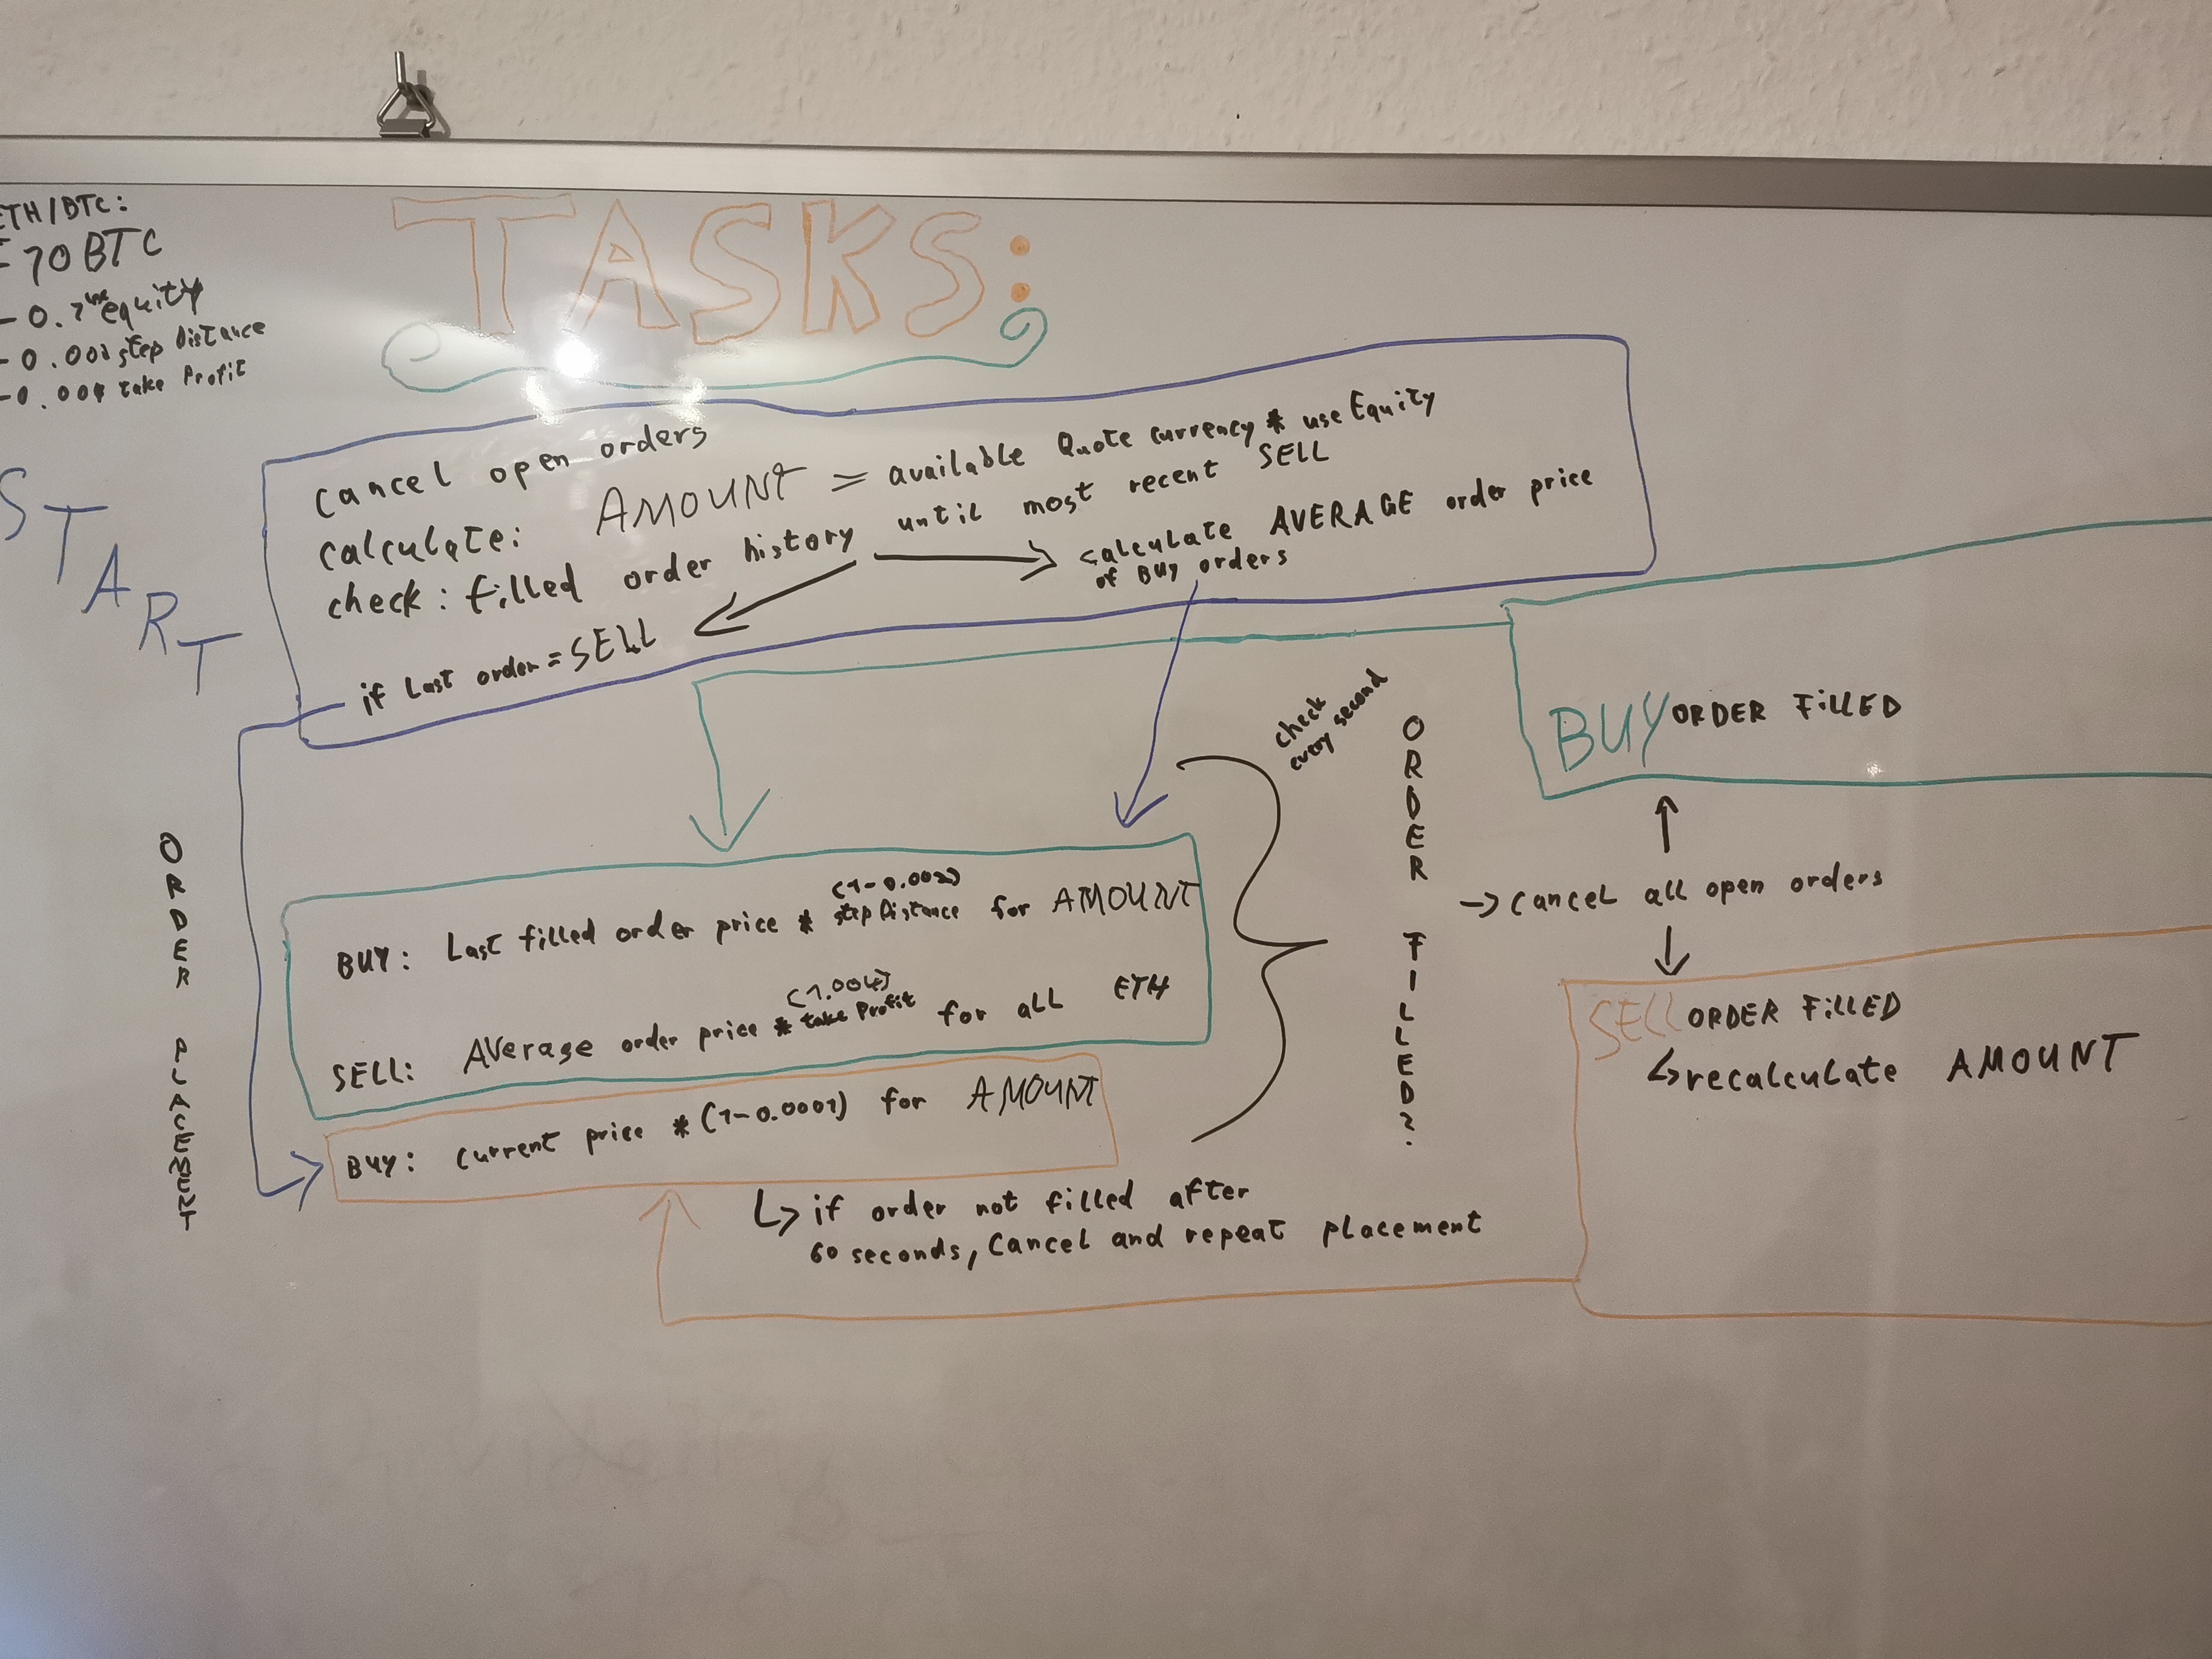 ETH/BTC:
70 BTC
equity
step Distance
- 0.004 take Profit
TASKS:
START
cancel open orders
calculate: AMOUNT = available Quote currency * use Equity
check: filled order history until most recent SELL
calculate AVERAGE order price
of BUY orders
if Last order = SELL
ORDER PLACEMENT
(1-0.002)
BUY: Last filled order price * step Distance for AMOUNT
(1.004)
SELL: AVerage order price * take Profit for all ETH
BUY: current price * (1-0.0001) for AMOUNT
if order not filled after
60 seconds, Cancel and repeat placement
check
every second
ORDER FILLED?
BUY ORDER FiLLED
cancel all open orders
SELL ORDER FiLLED
recalculate AMOUNT